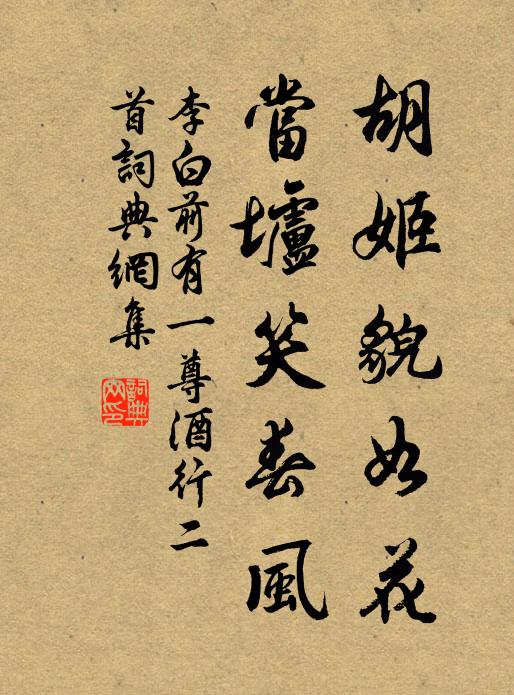 胡姬貌如花
當壚笑春風
李白前有一尊酒行二
首詞典網集
詞典
网印